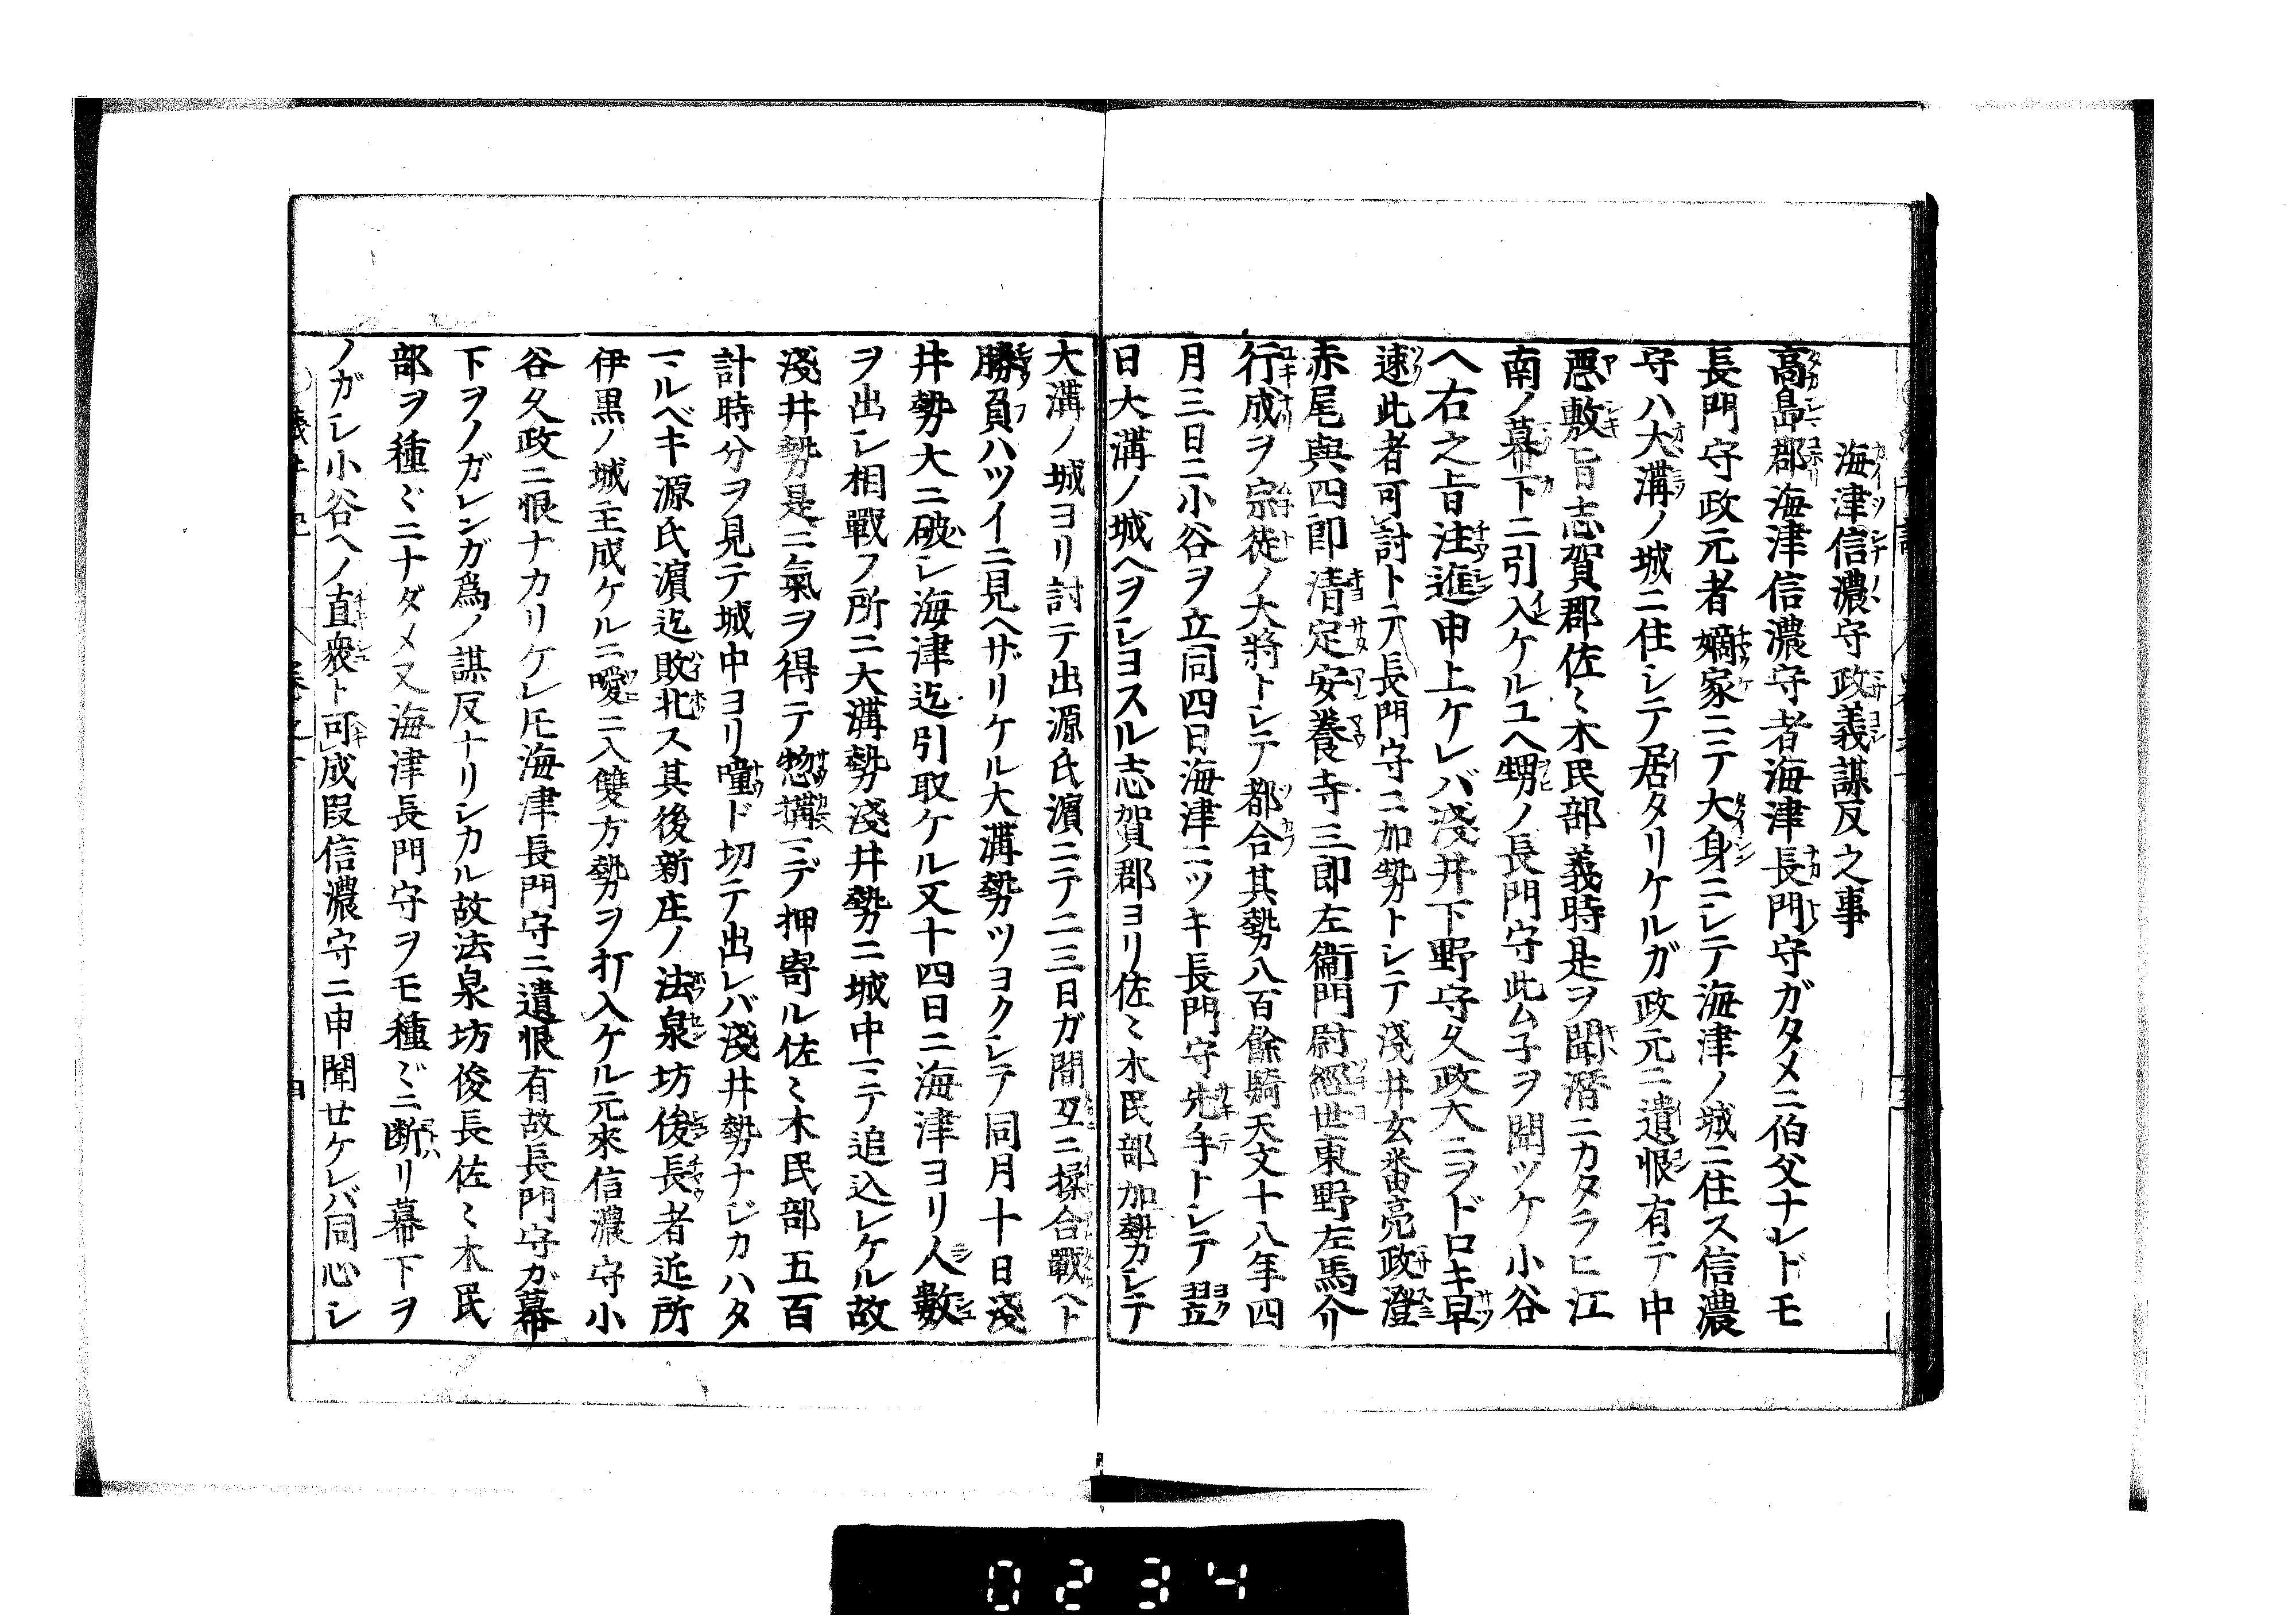 海津信濃守政義謀反之事
高島郡海津信濃守者海津長門守ガタメニ伯父ナレドモ
長門守政元者嫡家ニテ大身ニシテ海津ノ城ニ住ス信濃
守ハ大溝ノ城ニ住シテ居タリケルガ政元ニ遺恨有テ中
悪敷旨志賀郡佐〻木民部義時是ヲ聞潜ニカタラヒ江
南ノ幕下ニ引入ケルユヘ甥ノ長門守此ム子ヲ聞ツケ小谷
ヘ右之旨注進申上ケレバ淺井下野守久政大ニヲドロキ早
速此者可討トテ長門守ニ加勢トシテ淺井玄番亮政澄
赤尾與四郎清定安養寺三郎左衞門尉經世東野左馬介
行成ヲ宗徒ノ大將トシテ都合其勢八百餘騎天文十八年四
月三日ニ小谷ヲ立同四日海津ニツキ長門守先手トシテ翌
日大溝ノ城ヘヲシヨスル志賀郡ヨリ佐〻木民部加勢シテ
大溝ノ城ヨリ討テ出源氏濵ニテ二三日ガ間互ニ揉合戰ヘト
勝負ハツイニ見ヘザリケル大溝勢ツヨクシテ同月十日淺
井勢大ニ破レ海津迄引取ケル又十四日ニ海津ヨリ人數
ヲ出シ相戰フ所ニ大溝勢淺井勢ニ城中ミテ追込レケル故
淺井勢是ニ氣ヲ得テ惣搆ミデ押寄ル佐〻木民部五百
計時分ヲ見テ城中ヨリ噇ド切テ出レバ淺井勢ナジカハタ
ミルベキ源氏濵迄敗北ス其後新庄ノ法泉坊俊長者近所
伊黒ノ城主成ケルニ噯ニ入雙方勢ヲ打入ケル元來信濃守小
谷久政ニ恨ナカリケレ𪜈海津長門守ニ遺恨有故長門守ガ幕
下ヲノガレンガ爲ノ謀反ナリシカル故法泉坊俊長佐〻木民
部ヲ種〻ニナダメ又海津長門守ヲモ種〻ニ断リ幕下ヲ
ノガレ小谷ヘノ直衆ト可成段信濃守ニ申聞せケレバ同心シ
0234